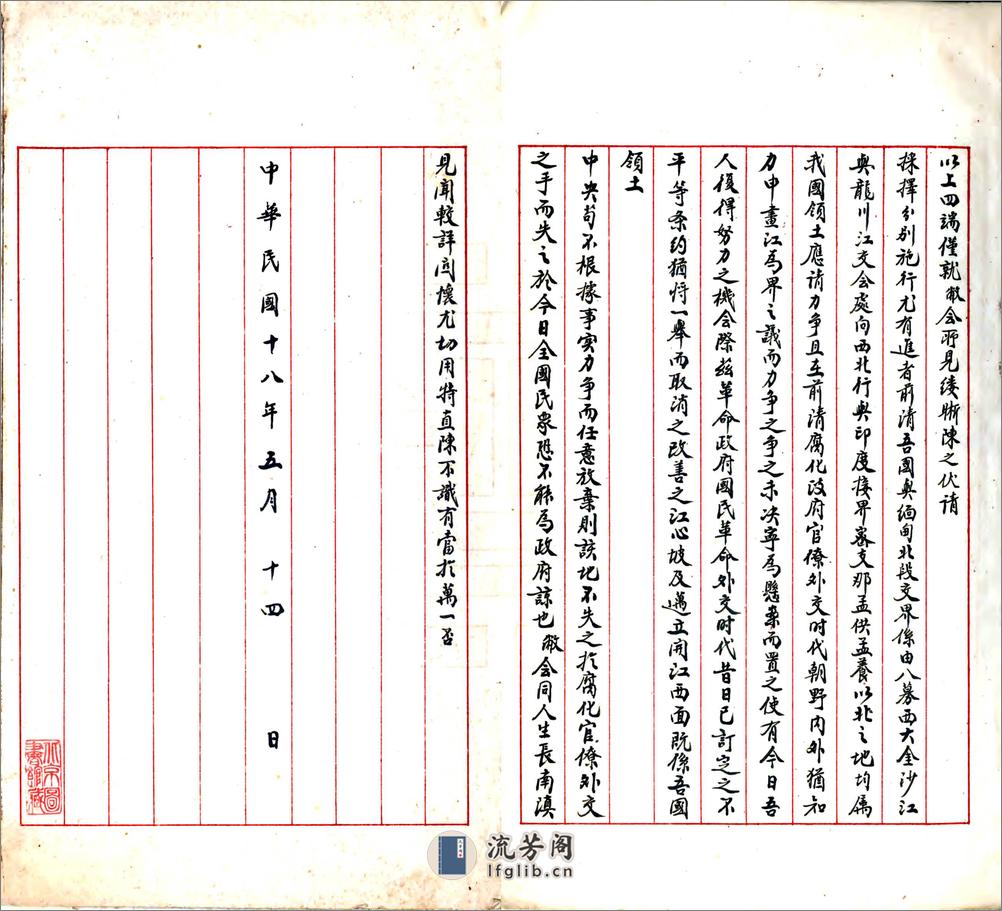 以上四端僅就敝会所見缕晰陳之伏請
採擇分别施行尤有進者前清吾國與緬甸北段交界係由八募西大金沙江
與龍川江交会處向西北行與印度接界審支那孟供孟養以北之地均属
我國領土應請力争且在前清腐化政府官僚外交时代朝野内外猶知
力申畫江為界之議而力争之争之未决寧為懸案而置之使有今日吾
人後得努力之機会際兹革命政府國民革命外交时代昔日已訂定之不
平等条约猶将一舉而取消之改善之江心坡及邁立開江西面既係吾國
領土
中央苟不根據事实力争而任意放棄則該地不失之於腐化官僚外交
之手而失之於今日全國民衆恐不能為政府諒也敝会同人生長南滇
見聞較詳関懷尤切用特直陳不識有當於萬一否
中華民國十八年五月十四日
北京圖書館藏
流芳阁
lfglib.cn